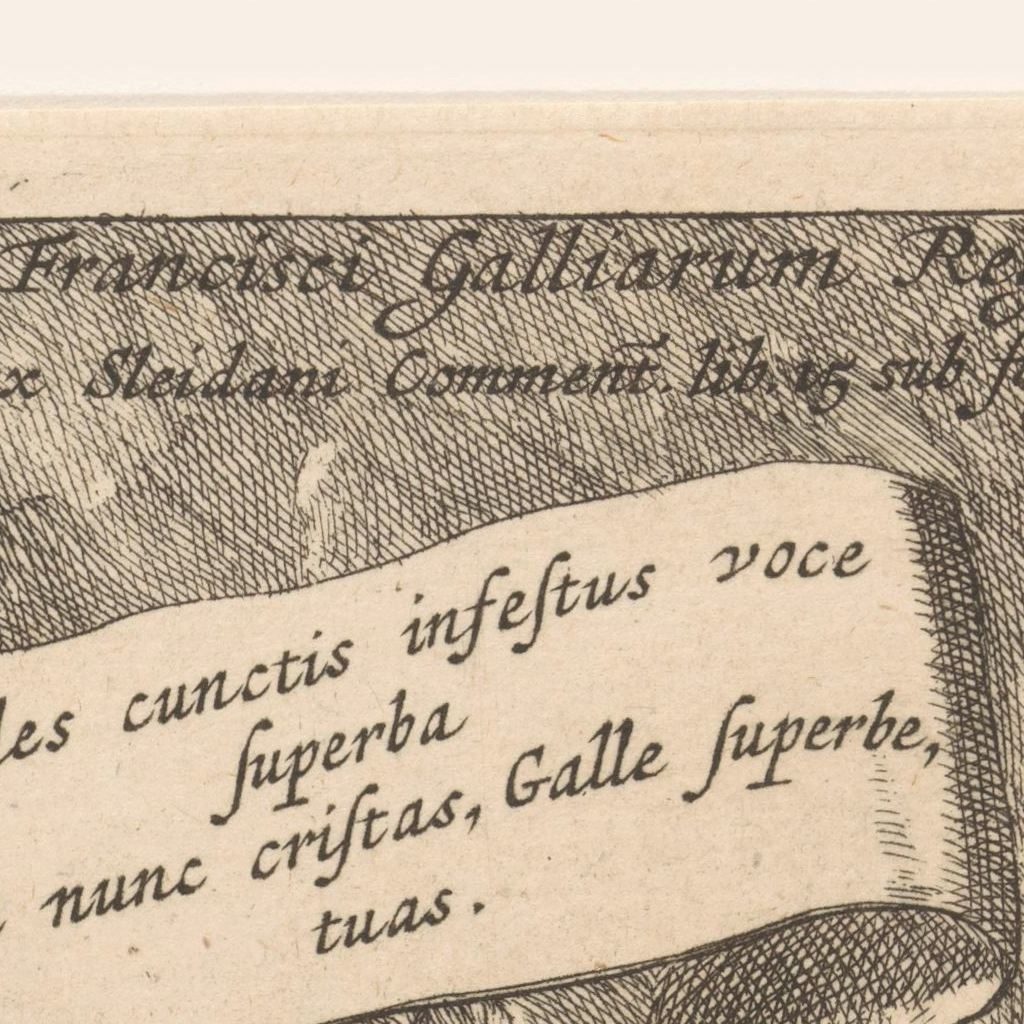 Francisci Galliarum Reg
x Sleidani Comment̃. lib. 15 sub fi
les cunctis infeſtus voce
ſuperba
nunc criſtas, Galle ſuperbe,
tuas.